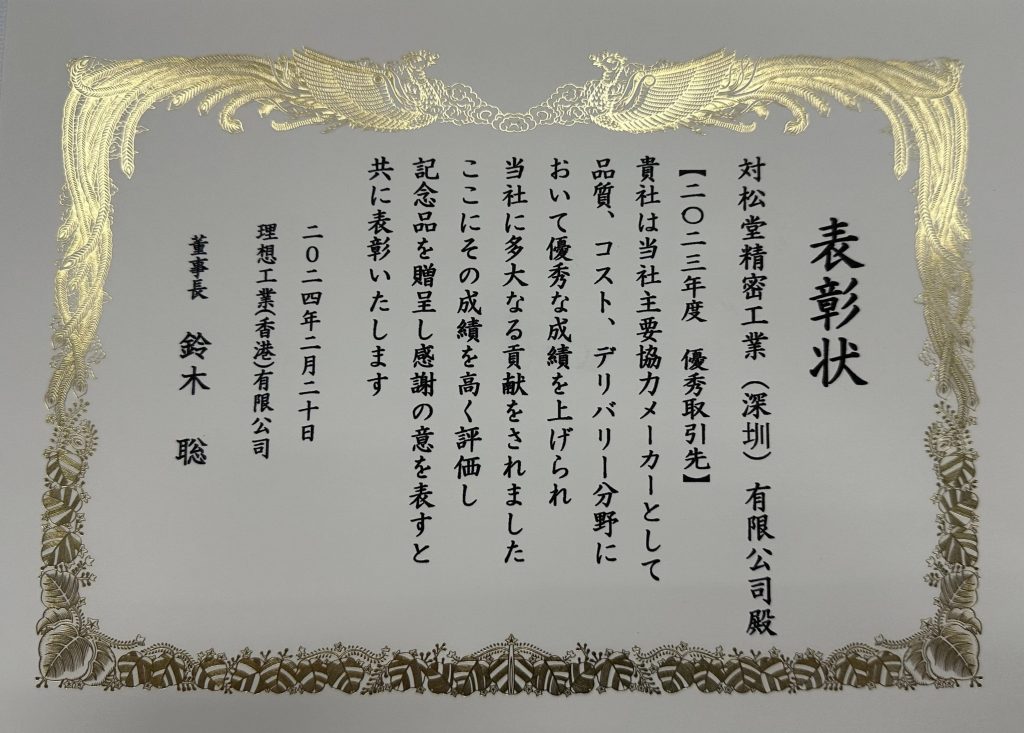 表彰状
対松堂精密工業（深圳）有限公司殿
【二〇二三年度　優秀取引先】
貴社は当社主要協力メーカーとして
品質、コスト、デリバリー分野に
おいて優秀な成績を上げられ
当社に多大なる貢献をされました
ここにその成績を高く評価し
記念品を贈呈し感謝の意を表すと
共に表彰いたします
二〇二四年二月二十日
理想工業(香港)有限公司
董事長　鈴木　聡